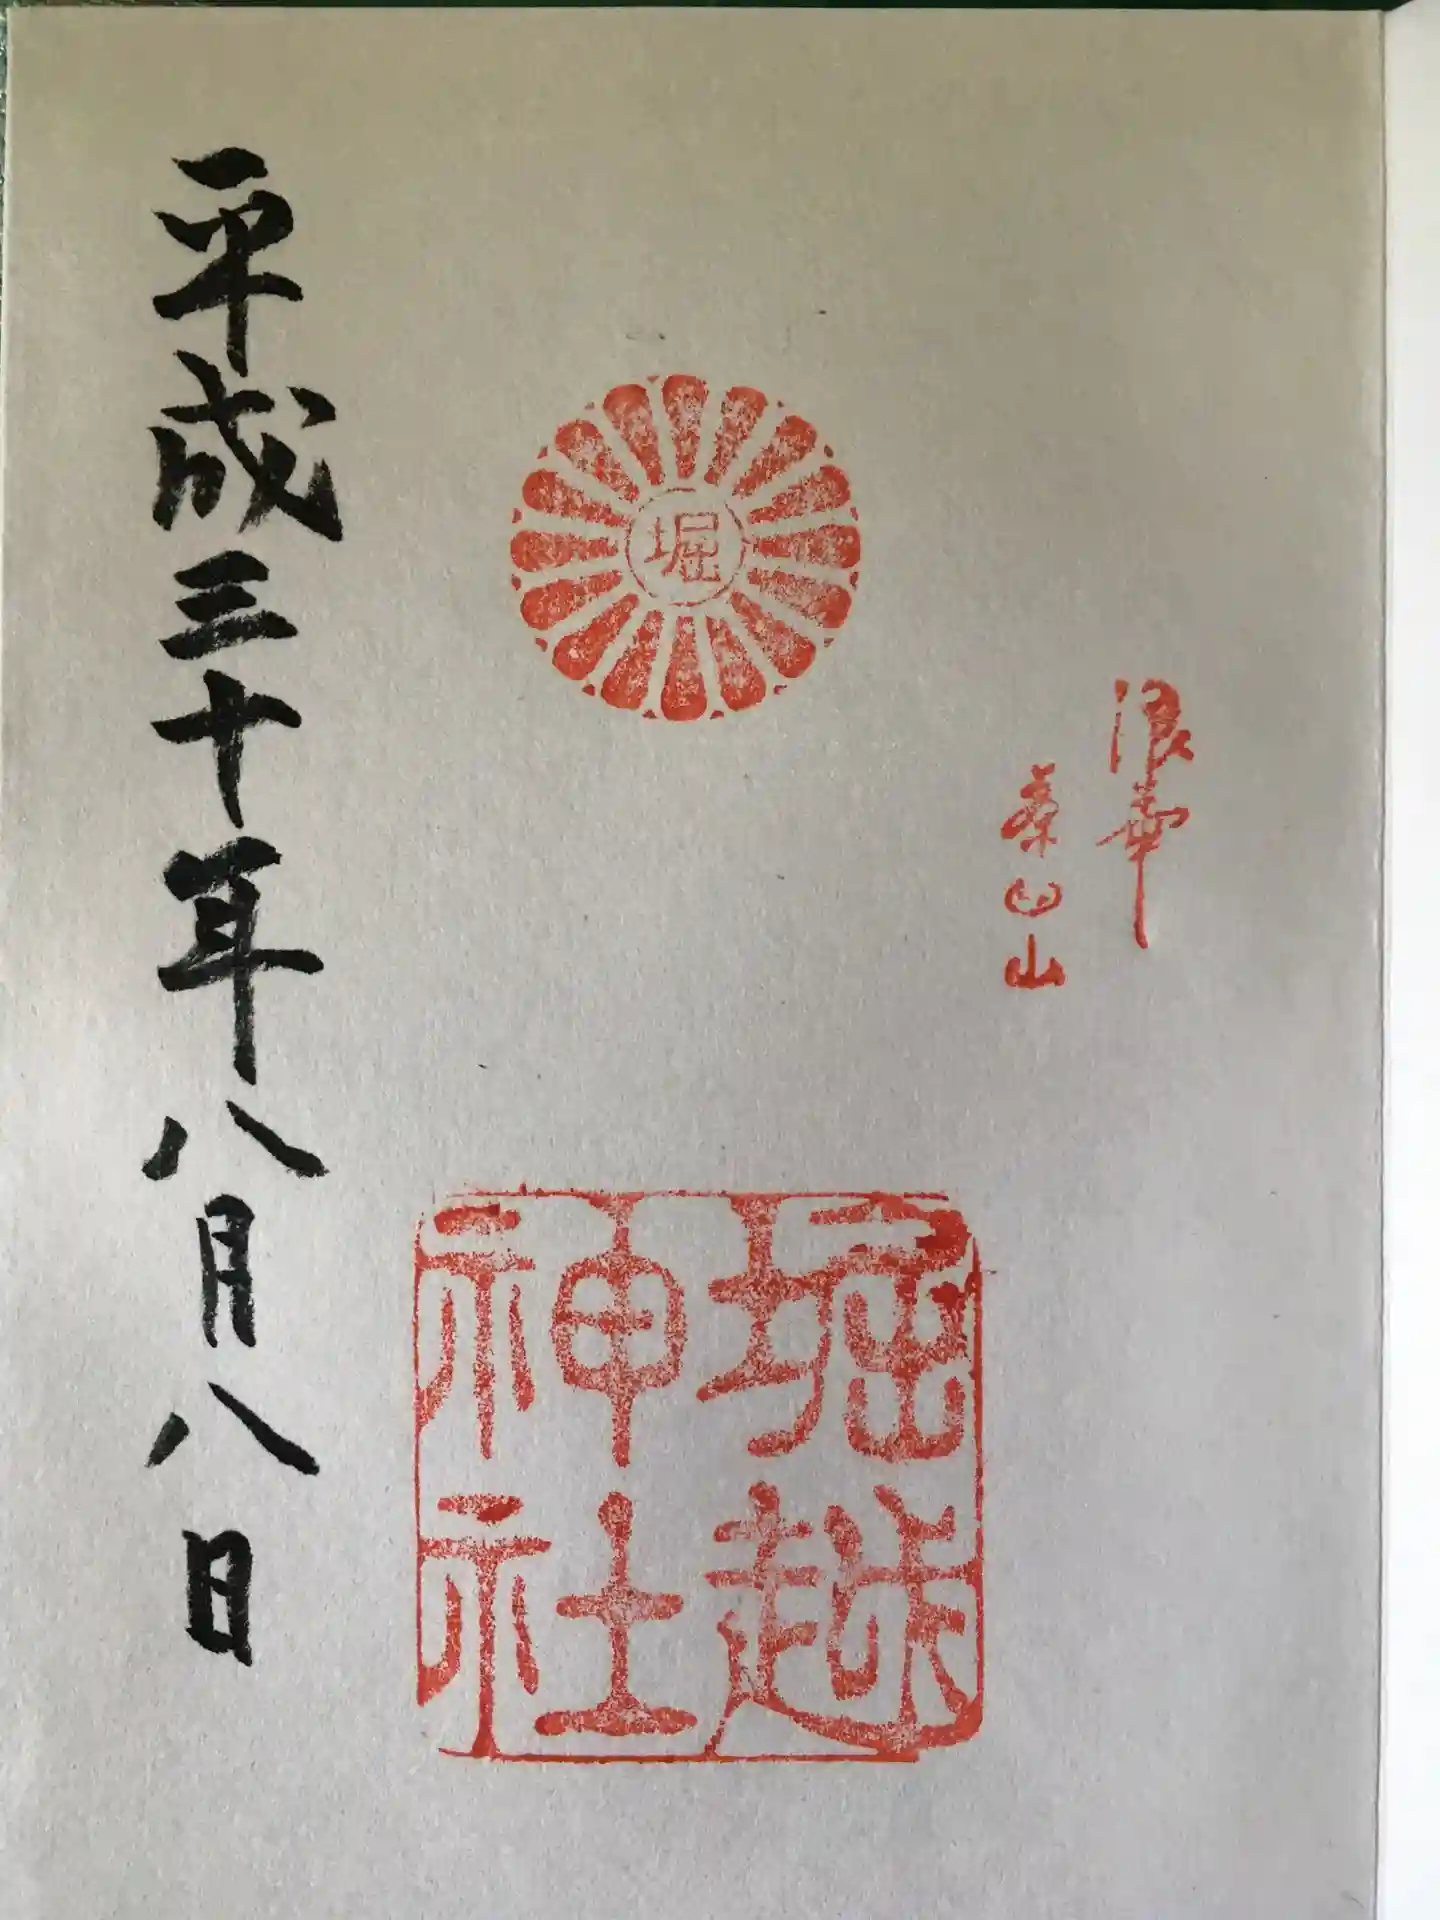 浪華
茶臼山
堀
堀越
神社
平成三十年八月八日